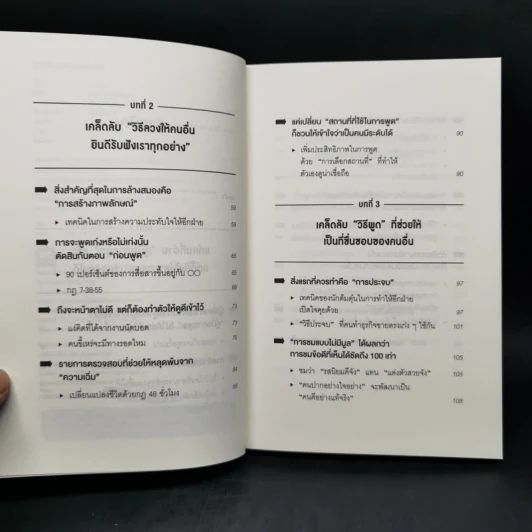 บทที่ 2
เคล็ดลับ "วิธีลวงให้คนอื่น
ยินดีรับฟังเราทุกอย่าง"
สิ่งสำคัญที่สุดในการล้างสมองคือ
"การสร้างภาพลักษณ์" 56
เทคนิคในการสร้างความประทับใจให้อีกฝ่าย 58
การจะพูดเก่งหรือไม่เก่งนั้น
ตัดสินกันตอน "ก่อนพูด" 65
90 เปอร์เซ็นต์ของการสื่อสารขึ้นอยู่กับ ○○ 65
กฎ 7-38-55 68
ถึงจะหน้าตาไม่ดี แต่ก็ต้องทำตัวให้ดูดีเข้าไว้ 73
แง่คิดที่ได้จากงานนัดบอด 73
คนขี้เหร่จะมีทางรอดไหม 77
รายการตรวจสอบที่ช่วยให้หลุดพ้นจาก
"ความเฉิ่ม" 84
เปลี่ยนแปลงชีวิตด้วยกฎ 48 ชั่วโมง 88
แค่เปลี่ยน "สถานที่ที่ใช้ในการพูด"
ก็ชวนให้เข้าใจว่าเป็นคนมีระดับได้ 90
เพิ่มประสิทธิภาพในการพูด
ด้วย "การเลือกสถานที่" ที่ทำให้
ตัวเองดูน่าเชื่อถือ 90
บทที่ 3
เคล็ดลับ "วิธีพูด" ที่ช่วยให้
เป็นที่ชื่นชอบของคนอื่น
สิ่งแรกที่ควรทำคือ "การประจบ" 97
เทคนิคของนักต้มตุ๋นในการทำให้อีกฝ่าย
เปิดใจคุยด้วย 97
"วิธีประจบ" ที่คนทำธุรกิจขายตรงเก่ง ๆ ใช้กัน 101
"การชมแบบไม่มีมูล" ได้ผลกว่า
การชมข้อดีที่เห็นได้ชัดถึง 100 เท่า 105
ชมว่า "รสนิยมดีจัง" แทน "แต่งตัวสวยจัง" 105
"คนปากอย่างใจอย่าง" จะพัฒนาเป็น
"คนดีอย่างแท้จริง" 108